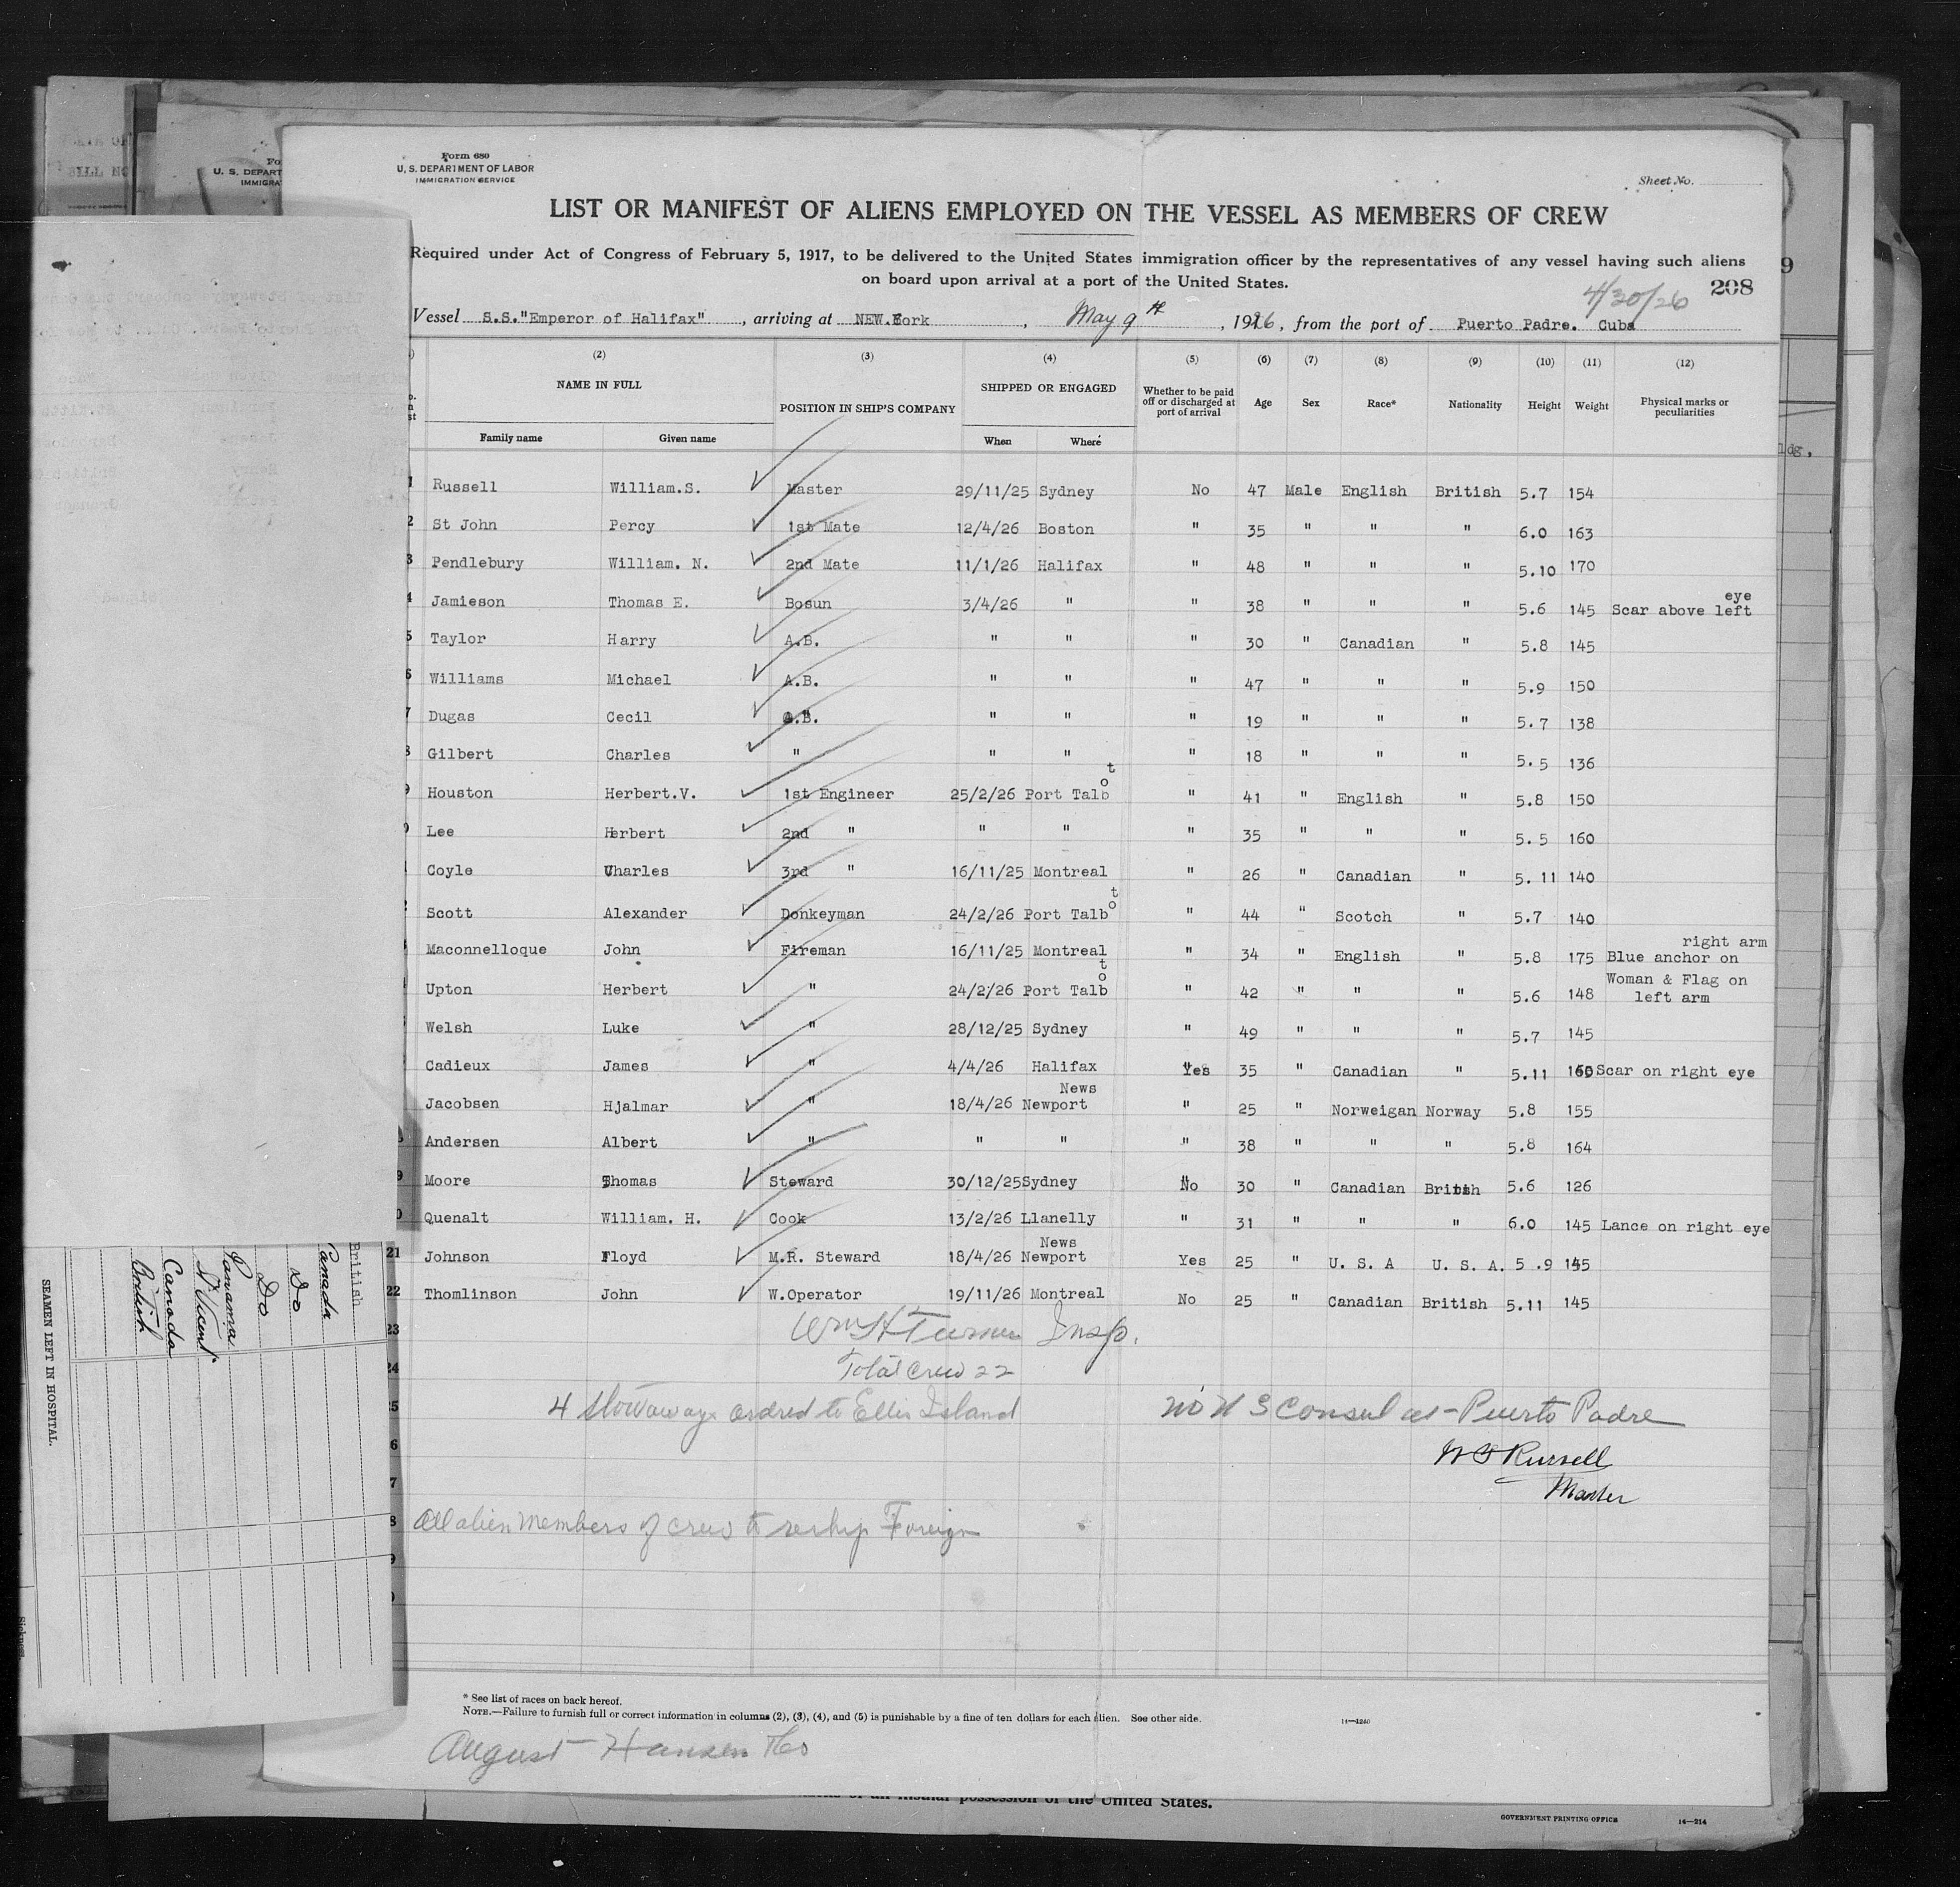 Form 680
U. S. DEPARTMENT OF LABOR
IMMIGRATION SERVICE
Sheet No.
LIST OR MANIFEST OF ALIENS EMPLOYED ON THE VESSEL AS MEMBERS OF CREW
Required under Act of Congress of February 5, 1917, to be delivered to the United States immigration officer by the representatives of any vessel having such aliens
on board upon arrival at a port of the United States.
4/30/26 208
Vessel S.S."Emperor of Halifax", arriving at NEW.York, May 9th, 1926, from the port of Puerto Padre. Cuba
(2) (3) (4) (5) (6) (7) (8) (9) (10) (11) (12)
NAME IN FULL POSITION IN SHIP'S COMPANY SHIPPED OR ENGAGED Whether to be paid off or discharged at port of arrival Age Sex Race* Nationality Height Weight Physical marks or peculiarities
Family name Given name When Where
1 Russell William.S. Master 29/11/25 Sydney No 47 Male English British 5.7 154
2 St John Percy 1st Mate 12/4/26 Boston " 35 " " " 6.0 163
3 Pendlebury William. N. 2nd Mate 11/1/26 Halifax " 48 " " " 5.10 170
4 Jamieson Thomas E. Bosun 3/4/26 " " 38 " " " 5.6 145 Scar above left eye
5 Taylor Harry A.B. " " " 30 " Canadian " 5.8 145
6 Williams Michael A.B. " " " 47 " " " 5.9 150
7 Dugas Cecil A.B. " " " 19 " " " 5.7 138
8 Gilbert Charles " " " " 18 " " " 5.5 136
9 Houston Herbert.V. 1st Engineer 25/2/26 Port Talbot " 41 " English " 5.8 150
Lee Herbert 2nd " " " " 35 " " " 5.5 160
Coyle Charles 3rd " 16/11/25 Montreal " 26 " Canadian " 5.11 140
Scott Alexander Donkeyman 24/2/26 Port Talbot " 44 " Scotch " 5.7 140
Maconnelloque John Fireman 16/11/25 Montreal " 34 " English " 5.8 175 Blue anchor on right arm
Upton Herbert " 24/2/26 Port Talbot " 42 " " " 5.6 148 Woman & Flag on left arm
Welsh Luke " 28/12/25 Sydney " 49 " " " 5.7 145
Cadieux James " 4/4/26 Halifax Yes 35 " Canadian " 5.11 160 Scar on right eye
Jacobsen Hjalmar " 18/4/26 Newport News " 25 " Norweigan Norway 5.8 155
Andersen Albert " " " " 38 " " " 5.8 164
9 Moore Thomas Steward 30/12/25 Sydney No 30 " Canadian British 5.6 126
0 Quenalt William. H. Cook 13/2/26 Llanelly " 31 " " " 6.0 145 Lance on right eye
21 Johnson Floyd M.R. Steward 18/4/26 Newport News Yes 25 " U. S. A U. S. A. 5 .9 145
22 Thomlinson John W.Operator 19/11/26 Montreal No 25 " Canadian British 5.11 145
23 Wm H Turner Insp.
24 Total Crew 22
4 Stowaways ordred to Ellis Island
no U S Consul at Puerto Padre
W S Russell
Master
All alien members of crew to reship Foreign
* See list of races on back hereof.
NOTE.—Failure to furnish full or correct information in columns (2), (3), (4), and (5) is punishable by a fine of ten dollars for each alien. See other side.
14—1240
August Hansen
of an insular possession of the United States.
GOVERNMENT PRINTING OFFICE 14—214
British
Canada
Do
Do
Panama
St Vicent
Canada
British
SEAMEN LEFT IN HOSPITAL.